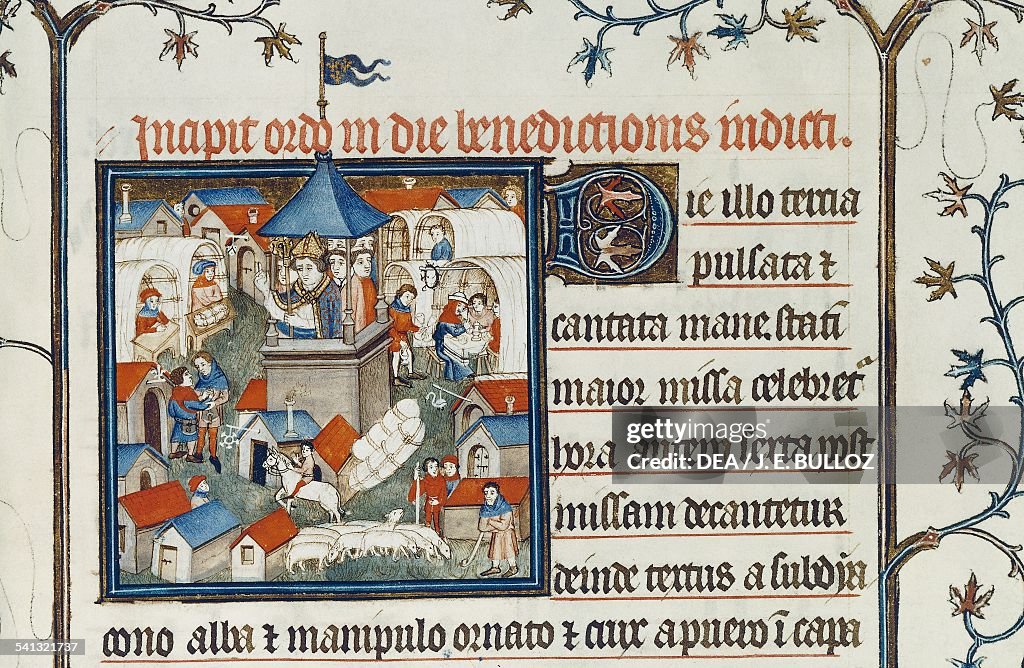 Incipit ordo in die benedictionis indicti.
Die illo tercia
pulsata ⁊
cantata mane. stati
maior missa celebret
hora autem tercia inst
missam decantetur
deinde textus a subdya
cono alba ⁊ manipulo ornato ⁊ crux a puero ī capa
gettyimages
Credit: DEA / J. E. BULLOZ
541321737